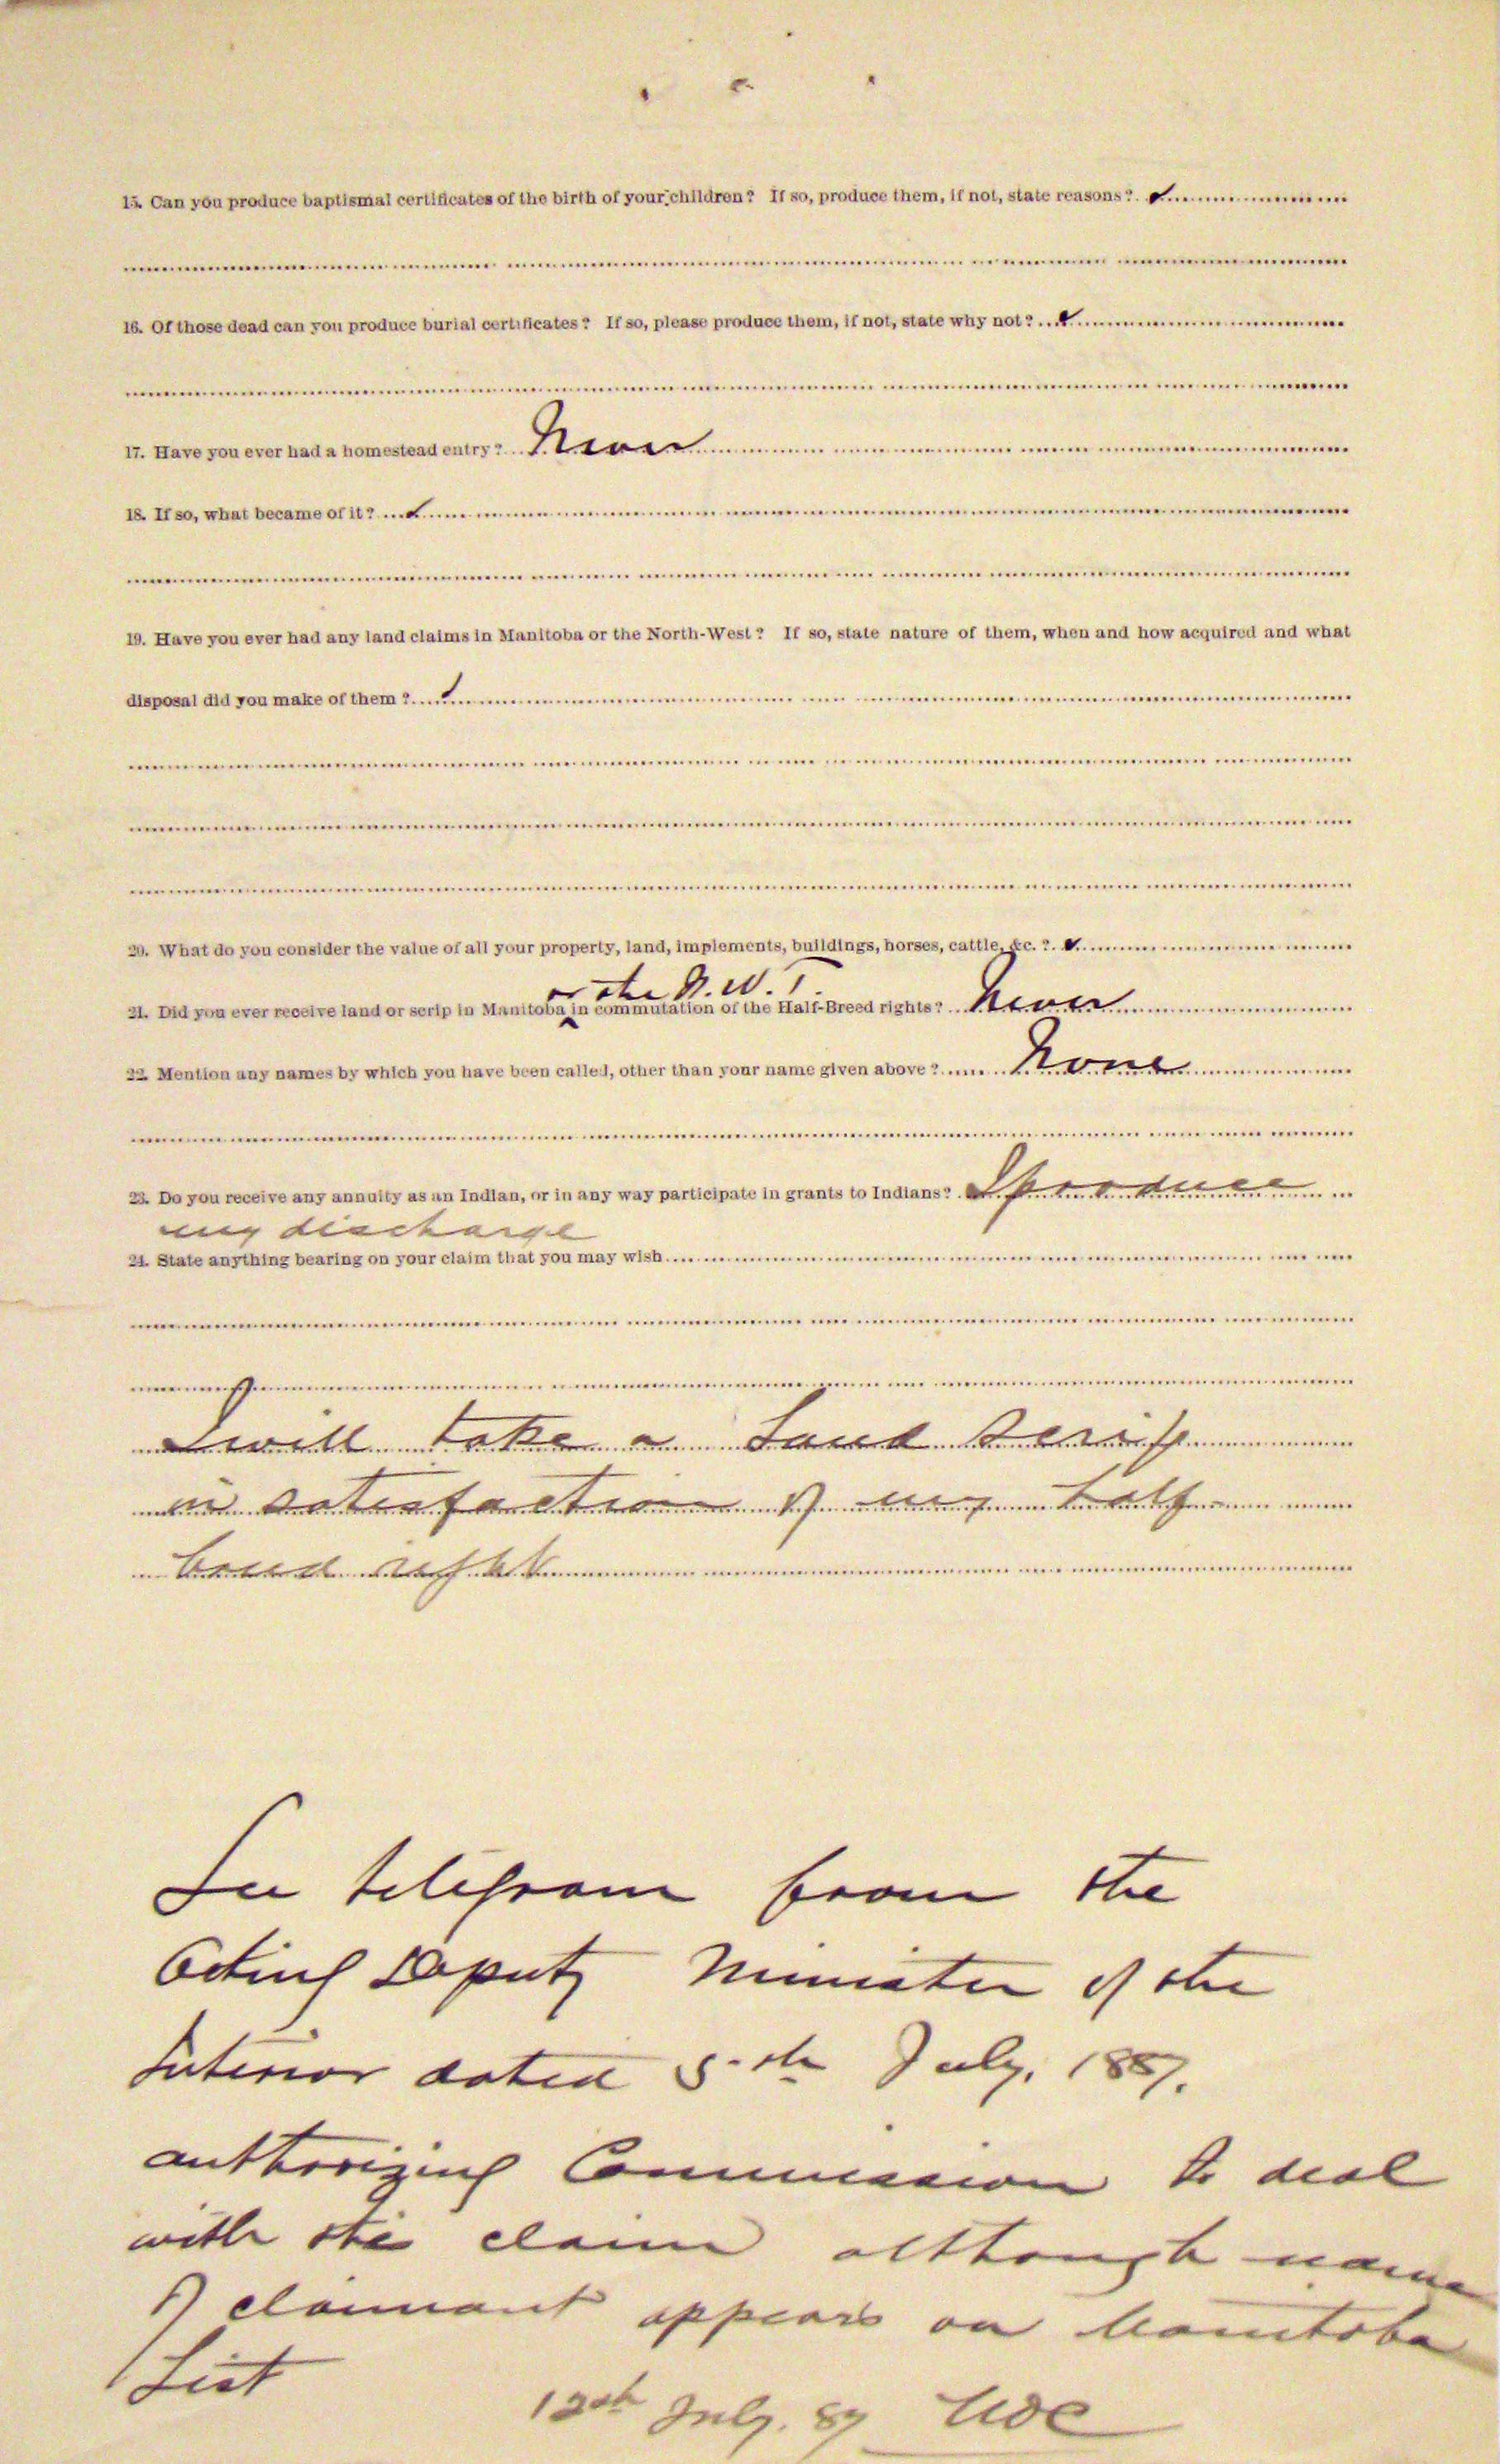 15. Can you produce baptismal certificates of the birth of your children? If so, produce them, if not, state reasons?
16. Of those dead can you produce burial certificates? If so, please produce them, if not, state why not?
17. Have you ever had a homestead entry? Never
18. If so, what became of it?
19. Have you ever had any land claims in Manitoba or the North-West? If so, state nature of them, when and how acquired and what
disposal did you make of them?
20. What do you consider the value of all your property, land, implements, buildings, horses, cattle, &c.?
or the N.W.T.
21. Did you ever receive land or scrip in Manitoba in commutation of the Half-Breed rights? Never
22. Mention any names by which you have been called, other than your name given above? None
23. Do you receive any annuity as an Indian, or in any way participate in grants to Indians? I produce
my discharge
24. State anything bearing on your claim that you may wish
I will take a Land Scrip
in satisfaction of my half
breed right
See telegram from the
Acting Deputy Minister of the
Interior dated 5th July, 1887.
authorizing Commission to deal
with the claim although name
of claimant appears on Manitoba
List
12th July. 87